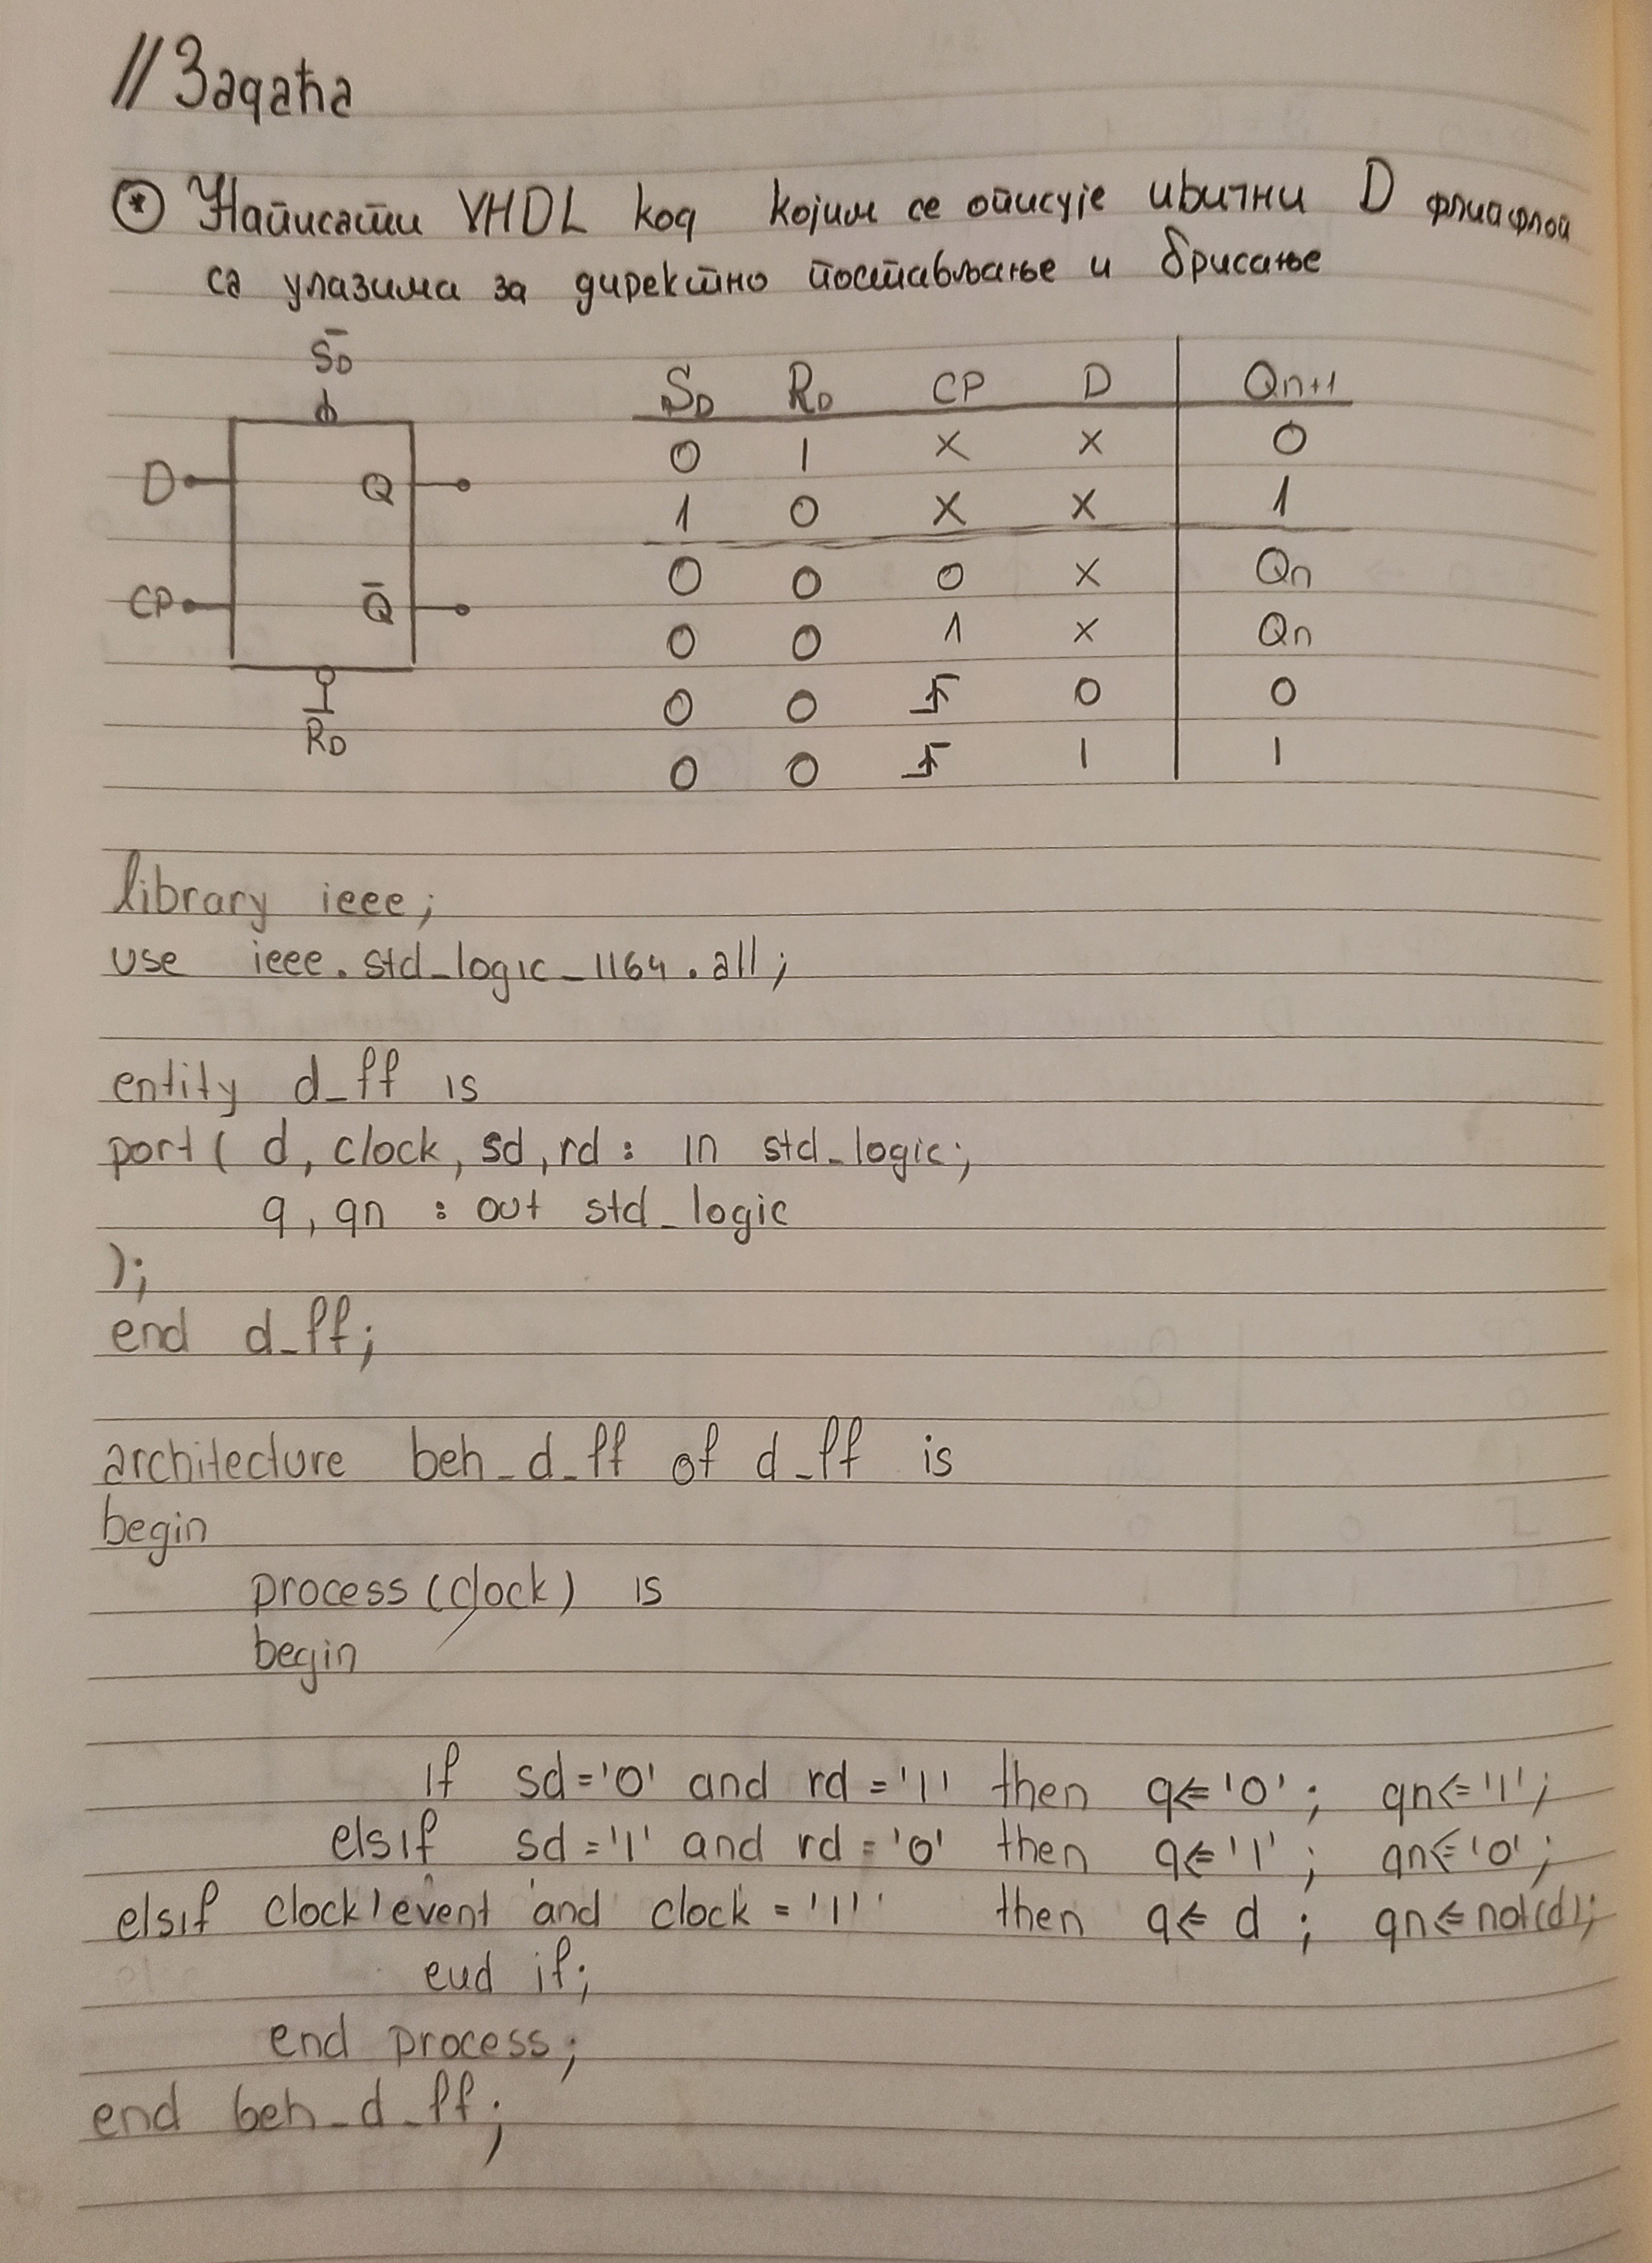 // Задаћа
* Написати VHDL код којим се описује ивични D флипфлоп
са улазима за директно постављање и брисање
S̅D
D Q
CP Q̅
R̅D
SD RD CP D Qn+1
0 1 x x 0
1 0 x x 1
0 0 0 x Qn
0 0 1 x Qn
0 0 ↑ 0 0
0 0 ↑ 1 1
library ieee;
use ieee.std_logic_1164.all;
entity d_ff is
port( d, clock, sd, rd : in std_logic;
q, qn : out std_logic
);
end d_ff;
architecture beh_d_ff of d_ff is
begin
process(clock) is
begin
if sd='0' and rd='1' then q<='0'; qn<='1';
elsif sd='1' and rd='0' then q<='1'; qn<='0';
elsif clock'event and clock='1' then q<=d; qn<=not(d);
end if;
end process;
end beh_d_ff;